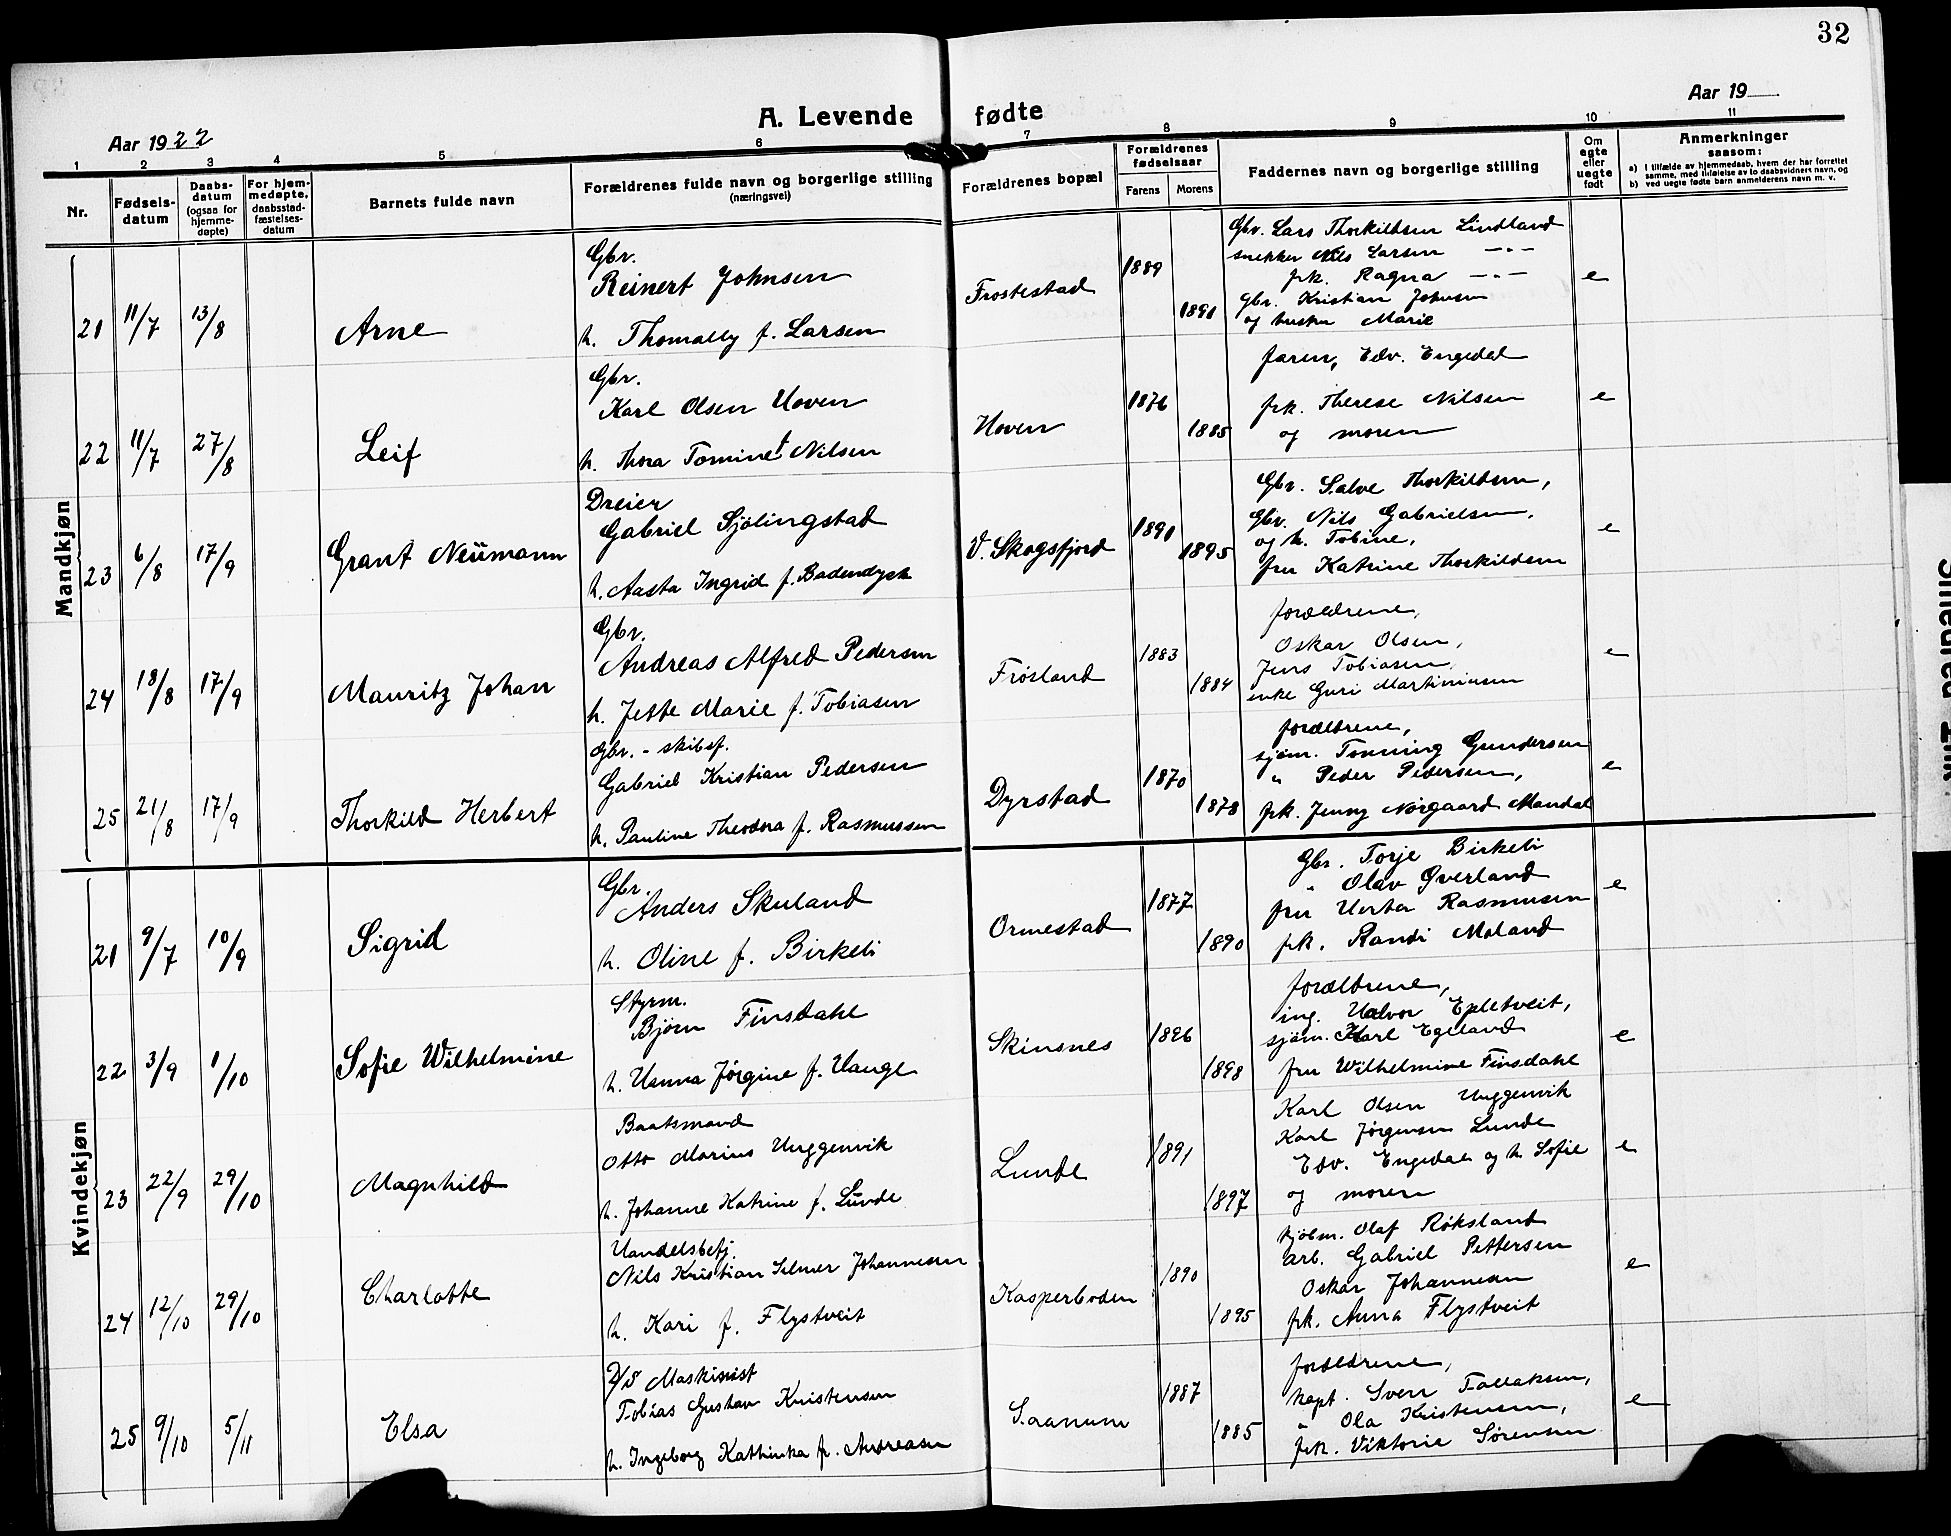 32
Aar 1922
A. Levende fødte
Aar 19
1 2 3 4 5 6 7 8 9 10 11
Nr.
Fødsels-datum
Daabs-datum (ogsaa for hjemme-døpte)
For hjem-medøpte, daabsstad-fæstelses-datum
Barnets fulde navn
Forældrenes fulde navn og borgerlige stilling (næringsvei)
Forældrenes bopæl
Forældrenes fødselsaar
Farens Morens
Faddernes navn og borgerlige stilling
Om egte eller uegte født
Anmerkninger saasom:
a) I tilfælde av hjemmedaab, hvem der har forrettet samme, med tilføielse av to daabsvidners navn, og
b) ved uegte fødte barn anmelderens navn m. v.
Mandkjøn
21 11/7 13/8 Arne
Gbr.
Reinert Johnsen
h. Thomally f. Larsen
Frostestad
1889
1891
Gbr. Lars Thorkildsen Lindland
snekker Nils Larsen -"-
frk. Ragna -"-
Gbr. Kristian Johnsen
og hustru Marie
e
22 11/7 27/8 Leif
Gbr.
Karl Olsen Hoven
h. Thora Tomine f Nilsen
Hoven
1876
1885
faren, Edv. Engedal
frk. Therese Nilsen
og moren
e
23 6/8 17/9 Grant Neümann
Dreier
Gabriel Sjölingstad
h. Aasta Ingrid f. Badendyck
V. Skogsfjord
1891
1895
Gbr. Salve Thorkildsen,
Gbr. Nils Gabrielsen,
og h. Tobine,
fru Katrine Thorkildsen
e
24 18/8 17/9 Mauritz Johan
Gbr.
Andreas Alfred Pedersen
h. Jette Marie f. Tobiasen
Frösland
1883
1884
forældrene,
Oskar Olsen,
Jens Tobiasen,
enke Guri Martiniusen
e
25 21/8 17/9 Thorkild Herbert
Gbr. - skibsf.
Gabriel Kristian Pedersen
h. Pauline Theodora f. Rasmussen
Dyrstad
1870
1878
forældrene,
sjöm. Tönning Gundersen
" Peder Pedersen,
frk. Jenny Nørgaard Mandal
e
Kvindekjøn
21 9/7 10/9 Sigrid
Gbr.
Anders Skuland
h. Oline f. Birkeli
Ormestad
1877
1890
Gbr. Torje Birkeli
" Olav Øverland
fru Herta Rasmusen
frk. Randi Moland
e
22 3/9 1/10 Sofie Wilhelmine
Styrm.
Bjørn Finsdahl
h. Hanna Jørgine f. Hauge
Skinsnes
1896
1898
forældrene,
ing. Halvor Epletveit,
sjöm. Karl Egeland
fru Wilhelmine Finsdahl
e
23 22/9 29/10 Magnhild
Baatsmand
Otto Marius Unggenvik
h. Johanne Katrine f. Lünde
Lunde
1891
1897
Karl Olsen Unggenvik
Karl Jørgensen Lunde
Edv. Engedal og h. Sofie
og moren
e
24 12/10 29/10 Charlotte
Handelsbetj.
Nils Kristian Selmer Johannesen
h. Kari f. Flystveit
Kasperboden
1890
1895
kjöbm. Olaf Röksland
arb. Gabriel Pettersen
Oskar Johannesen
frk. Anna Flystveit
e
25 9/10 5/11 Elsa
D/S Maskinist
Tobias Gustav Kristensen
h. Ingeborg Kathinka f. Andreasen
Saanum
1887
1885
forældrene,
kapt. Sven Tallaksen,
" Ola Kristensen,
frk. Viktorie Sørensen
e